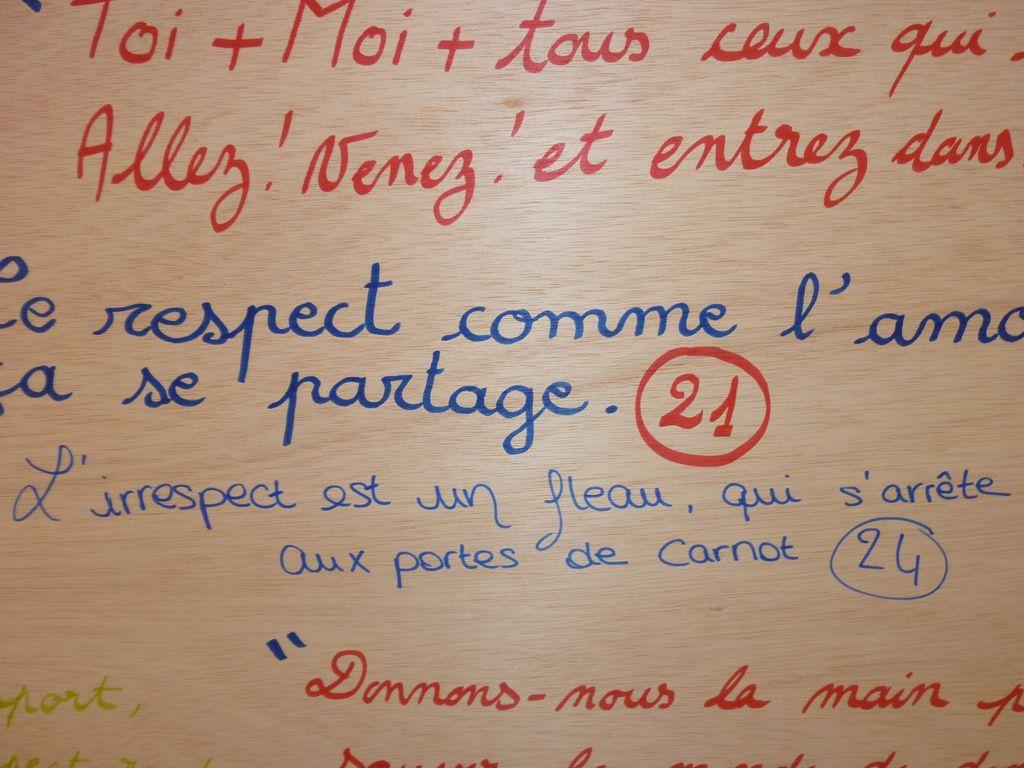 Toi + Moi + tous ceux qui
Allez! Venez! et entrez dans
Le respect comme l'amo
ça se partage. 21
L'irrespect est un fleau, qui s'arrête
aux portes de Carnot 24
"Donnons-nous la main p
port,